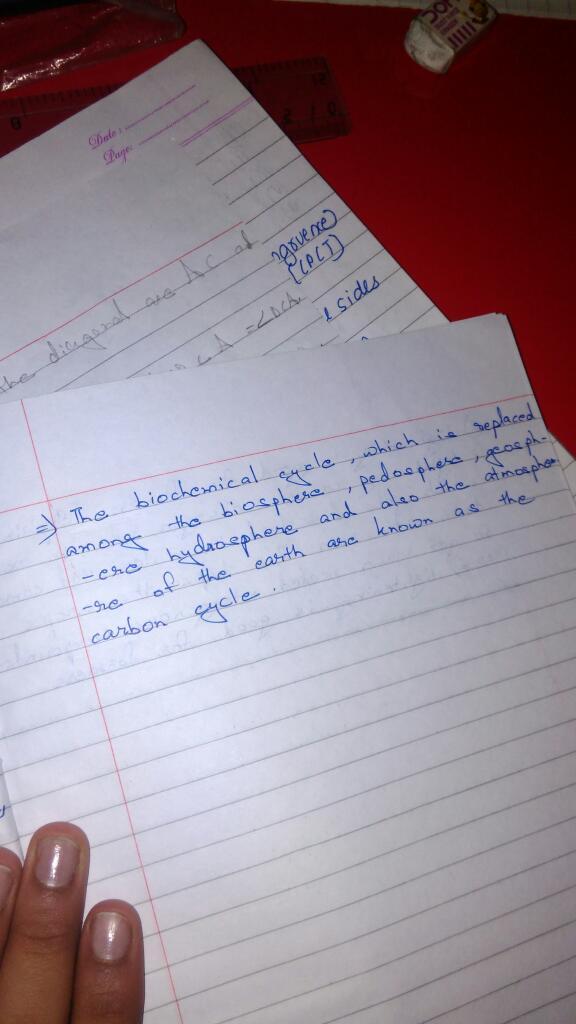 8
12
2 / 0
Date :
Page:
gruence)
[CPCT]
the diagonal are AC at
= ∠DCA.
sides
⇒ The biochemical cycle, which is replaced
among the biosphere, pedosphere, geosph-
-ere hydrosphere and also the atmosphe
-re of the earth are known as the
carbon cycle.